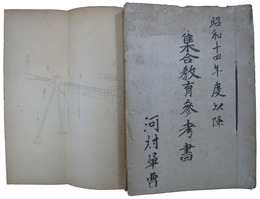 昭和十四年度以降
集合教育参考書
河村軍曹